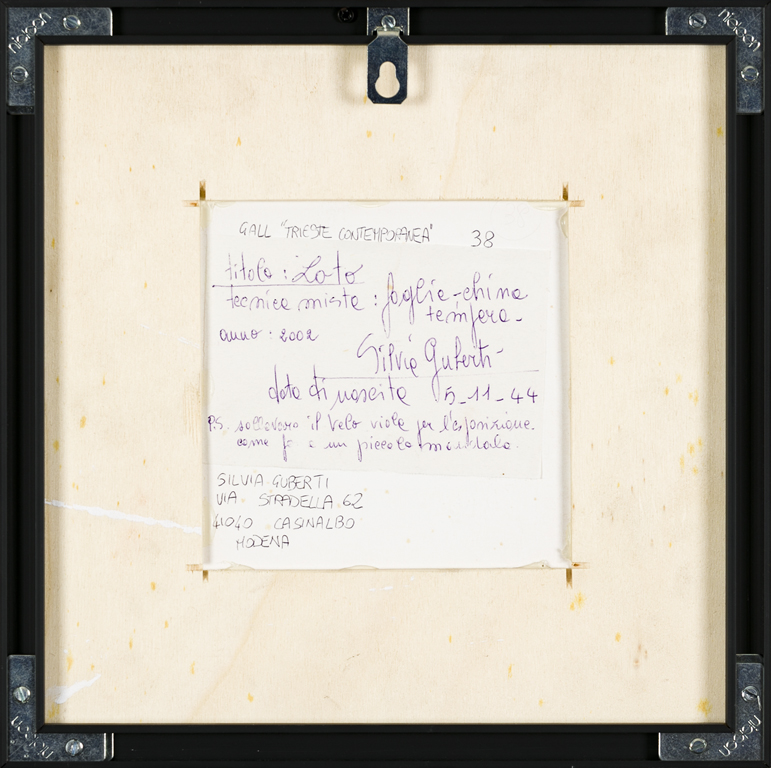 nielsen
nielsen
GALL "TRIESTE CONTEMPORANEA" 38
titolo : Loto
tecnica mista : foglie - china
tempera -
anno : 2002
Silvia Guberti
data di nascita 5-11-44
P.S. sollevare il velo viola per l'esposizione.
come fo a un piccolo mandala.
SILVIA GUBERTI
VIA STRADELLA 62
41040 CASINALBO
MODENA
nielsen
nielsen